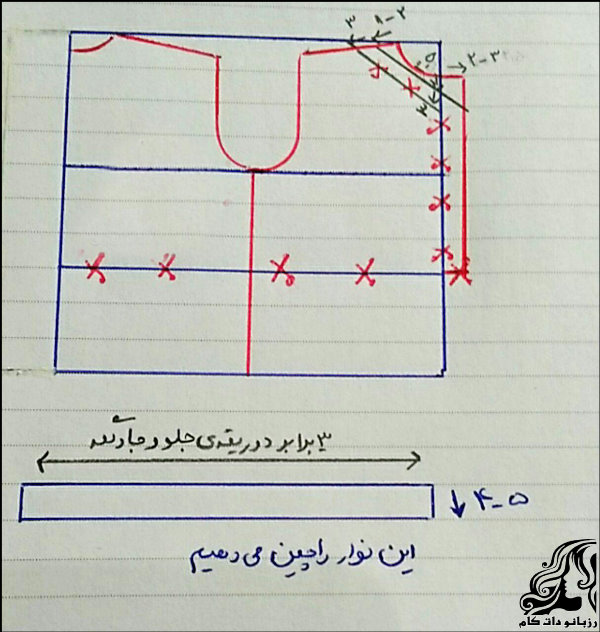 ۳
۱-۲
۰/۵
۲-۳
۳
۳ برابر دور یقه‌ی جلو و جادکمه
۴-۵
این نوار را چین می دهیم
رزبانو دات کام